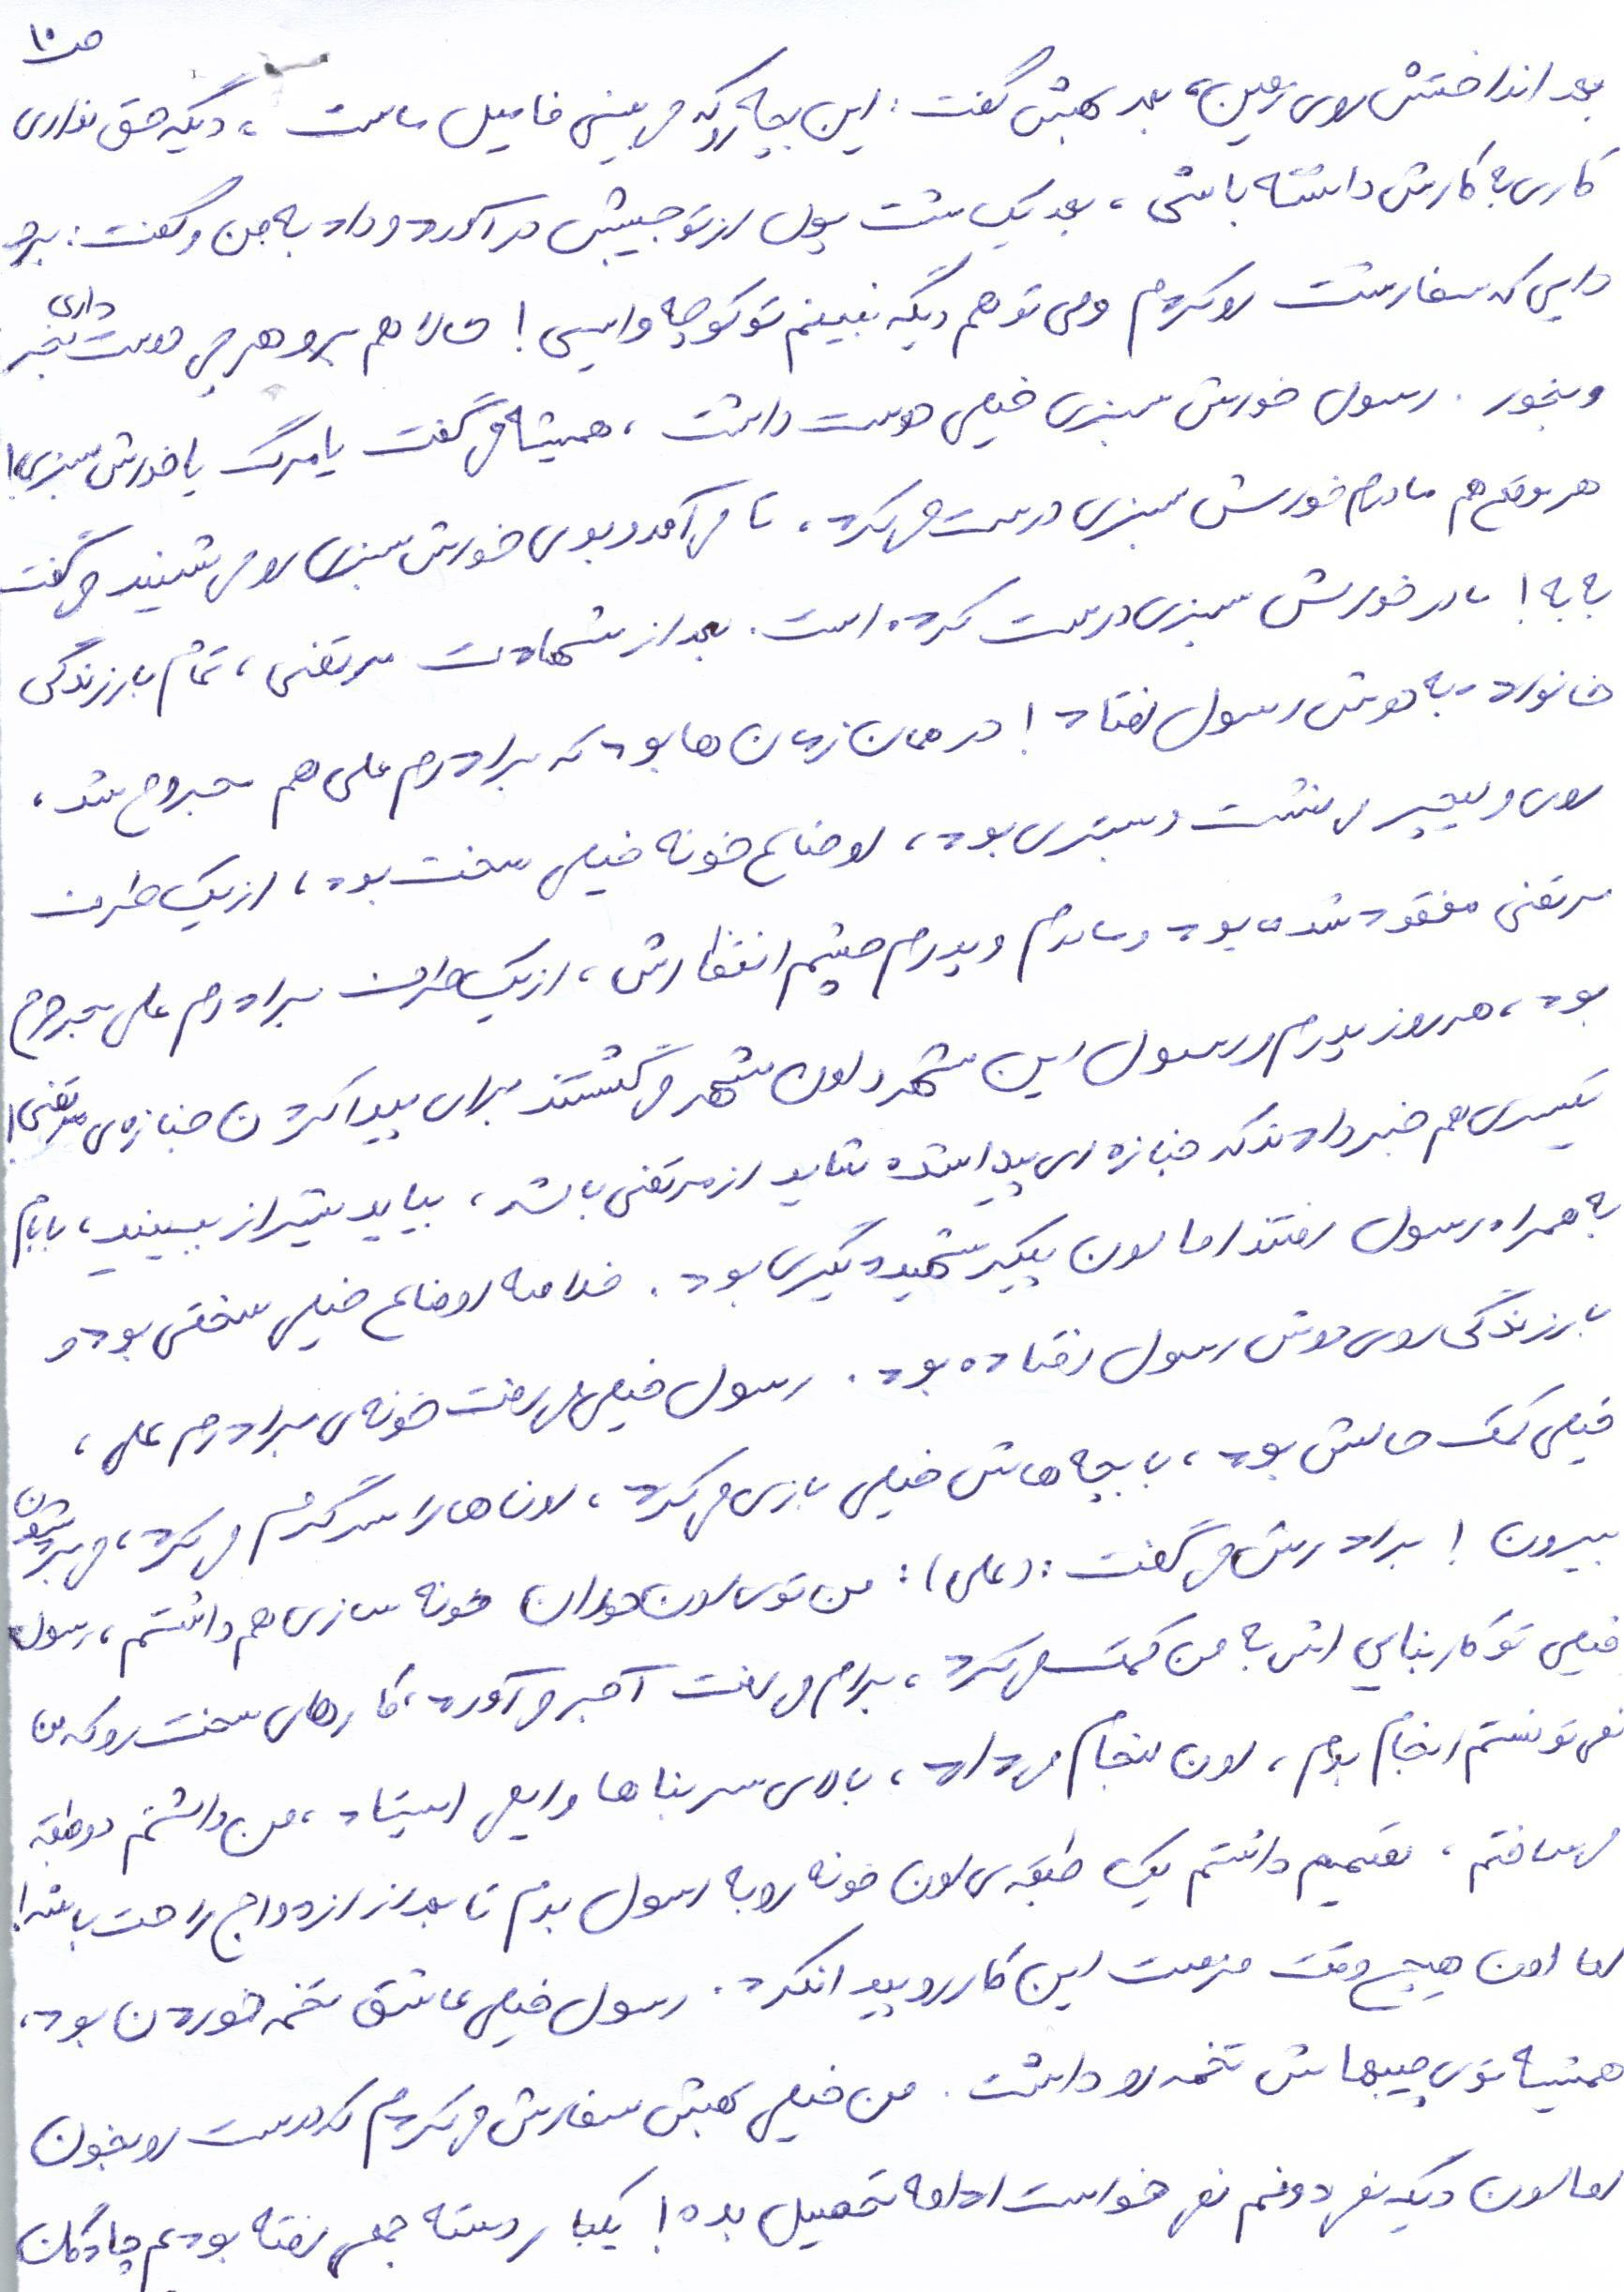 ص۱۰
بعد انداختش روی زمین، بعد بهش گفت: این بچه رو که می بینی فامیل ماست، دیگه حق نداری
کاری به کارش داشته باشی، بعد یک مشت پول از تو جیبش در آورد و داد به من و گفت: برو
دایی که سفارشت رو کردم ولی تو هم دیگه نبینم تو کوچه وایسی! حالا هم برو هر چی دوست داری بخر
و بخور. رسول خورش سبزی خیلی دوست داشت، همیشه می گفت یا مرگ یا خورش سبزی!
هر موقع هم مادرم خورش سبزی درست می کرد، تا می آمد و بوی خورش سبزی رو می شنید می گفت
به به! مادر خورش سبزی درست کرده است. بعد از شهادت مرتضی، تمام بار زندگی
خانواده به دوش رسول افتاد! در همان زمان ها بود که برادرم علی هم مجروح شد،
روی ویلچر می نشست و بستری بود، اوضاع خونه خیلی سخت بود، از یک طرف
مرتضی مفقود شده بود و مادرم و پدرم چشم انتظارش، از یک طرف برادرم علی مجروح
بود، هر روز پدرم و رسول این شهر و اون شهر می گشتند برای پیدا کردن جنازه ی مرتضی!
یکسری هم خبر دادند که جنازه ای پیدا شده شاید از مرتضی باشه، بیاید شیراز ببینید، بابام
به همراه رسول رفتند اما اون پیکر شهید دیگری بود. خلاصه اوضاع خیلی سختی بود و
بار زندگی روی دوش رسول افتاده بود. رسول خیلی می رفت خونه ی برادرم علی،
خیلی کمک حالش بود، با بچه هاش خیلی بازی می کرد، اون ها را سرگرم می کرد، می بردشون
بیرون! برادرش می گفت: (علی): من توی اون دوران خونه سازی هم داشتم، رسول
خیلی تو کار بنایی اش به من کمک می کرد، برام می رفت آجر می آورد، کارهای سخت رو که من
نمی تونستم انجام بدم، اون انجام می داد، بالای سر بناها وایمی ایستاد، من داشتم دو طبقه
می ساختم، تصمیم داشتم یک طبقه ی اون خونه رو به رسول بدم تا بعد از ازدواج راحت باشه!
اما اون هیچ وقت فرصت این کار رو پیدا نکرد. رسول خیلی عاشق تخمه خوردن بود،
همیشه توی جیبهاش تخمه رو داشت. من خیلی بهش سفارش می کردم که درست رو بخون
اما اون دیگه نمی دونم نمی خواست ادامه تحصیل بده! یکبار دسته جمعی رفته بودیم چادگان